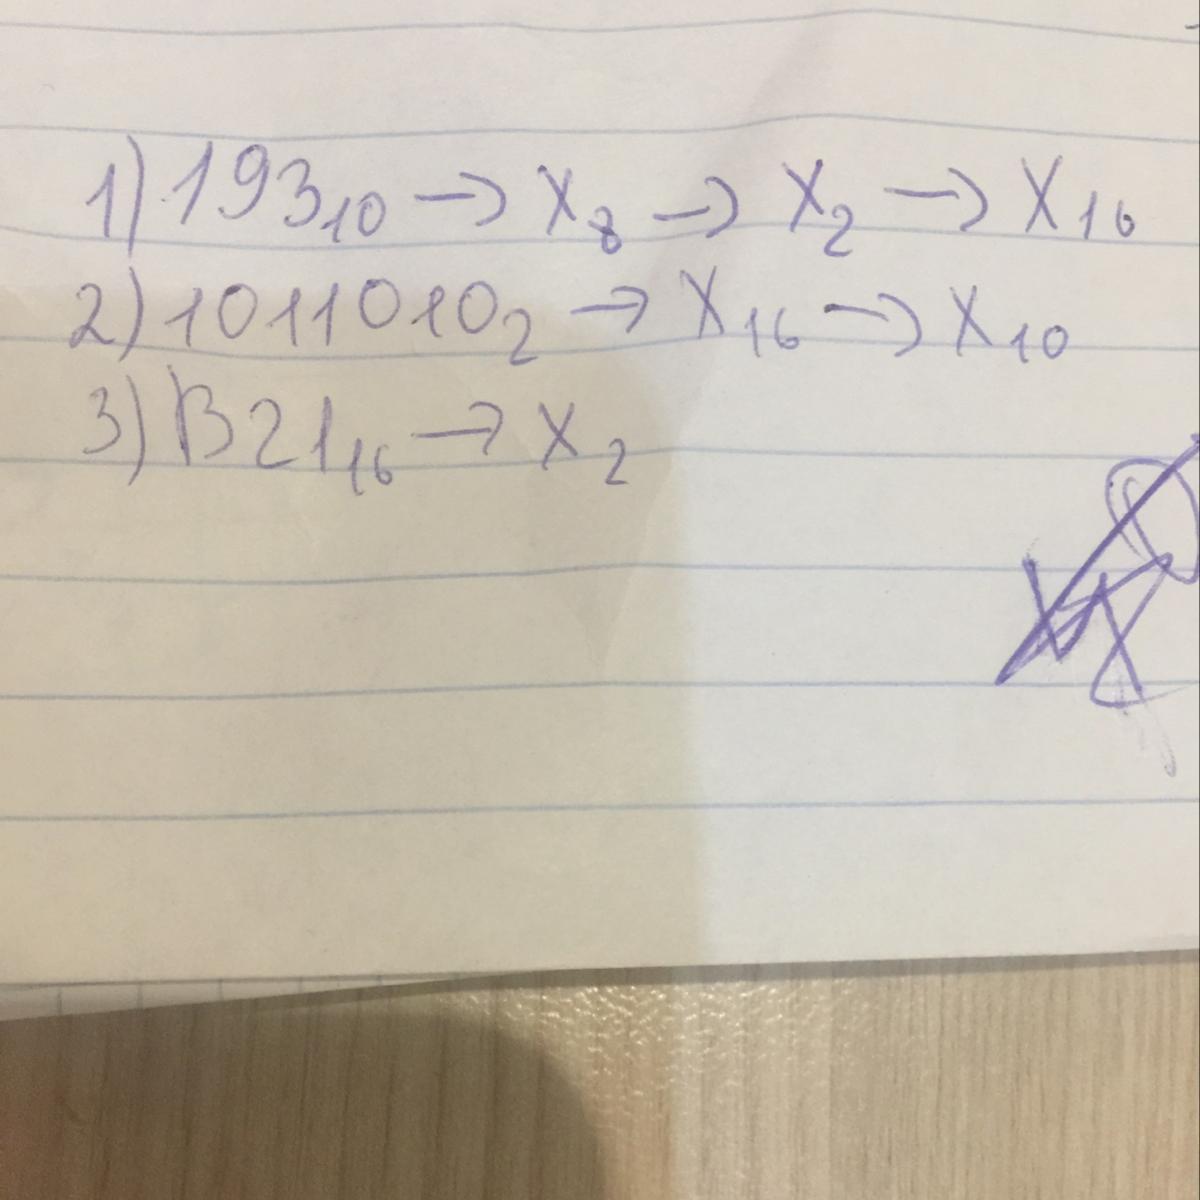 1) 193₁₀ → X₈ → X₂ → X₁₆
2) 1011010₂ → X₁₆ → X₁₀
3) B21₁₆ → X₂